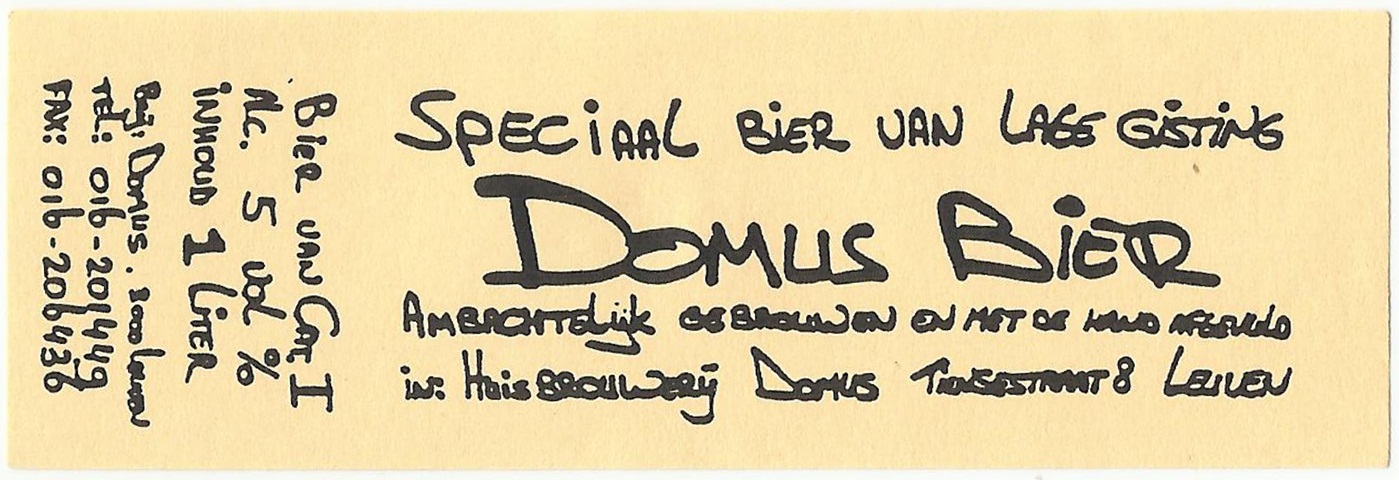 SPECIAAL BIER VAN LAGE GISTING
DOMUS BIER
AMBACHTELIJK GEBROUWEN EN MET DE HAND AFGEVULD
in: HUISBROUWERIJ DOMUS TIENSESTRAAT 8 LEUVEN
BIER VAN CAT I
Alc. 5 vol %
INHOUD 1 LITER
Brij: DOMUS. 3000 Leuven
TEL: 016-201449
FAX: 016-206436